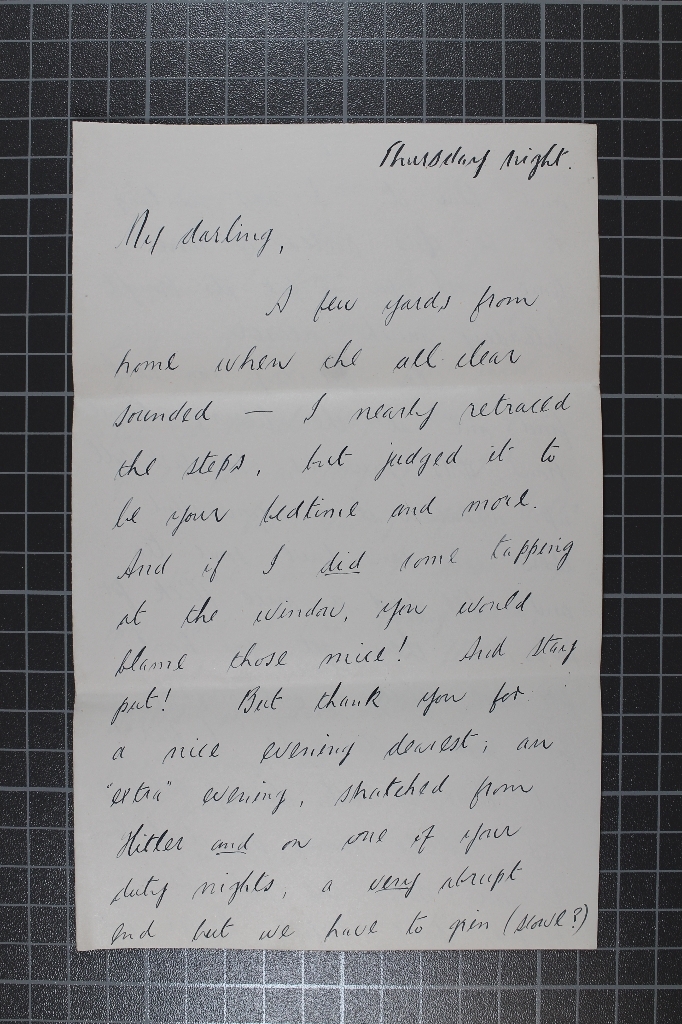 Thursday night.
My darling,
A few yards from
home when the all clear
sounded — I nearly retraced
the steps, but judged it to
be your bedtime and more.
And if I did come tapping
at the window, you would
blame those mice! And stay
put! But thank you for
a nice evening dearest; an
"extra" evening, snatched from
Hitler and on one of your
duty nights, a very abrupt
end but we have to grin (scowl?)